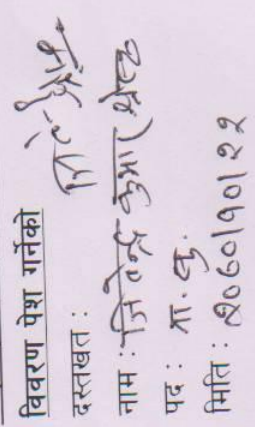 विवरण पेश गर्नेको
दस्तखत :
नाम : जितेन्द्र कुमार
पद : ना. सु.
मिति : २०६०।१०।२२